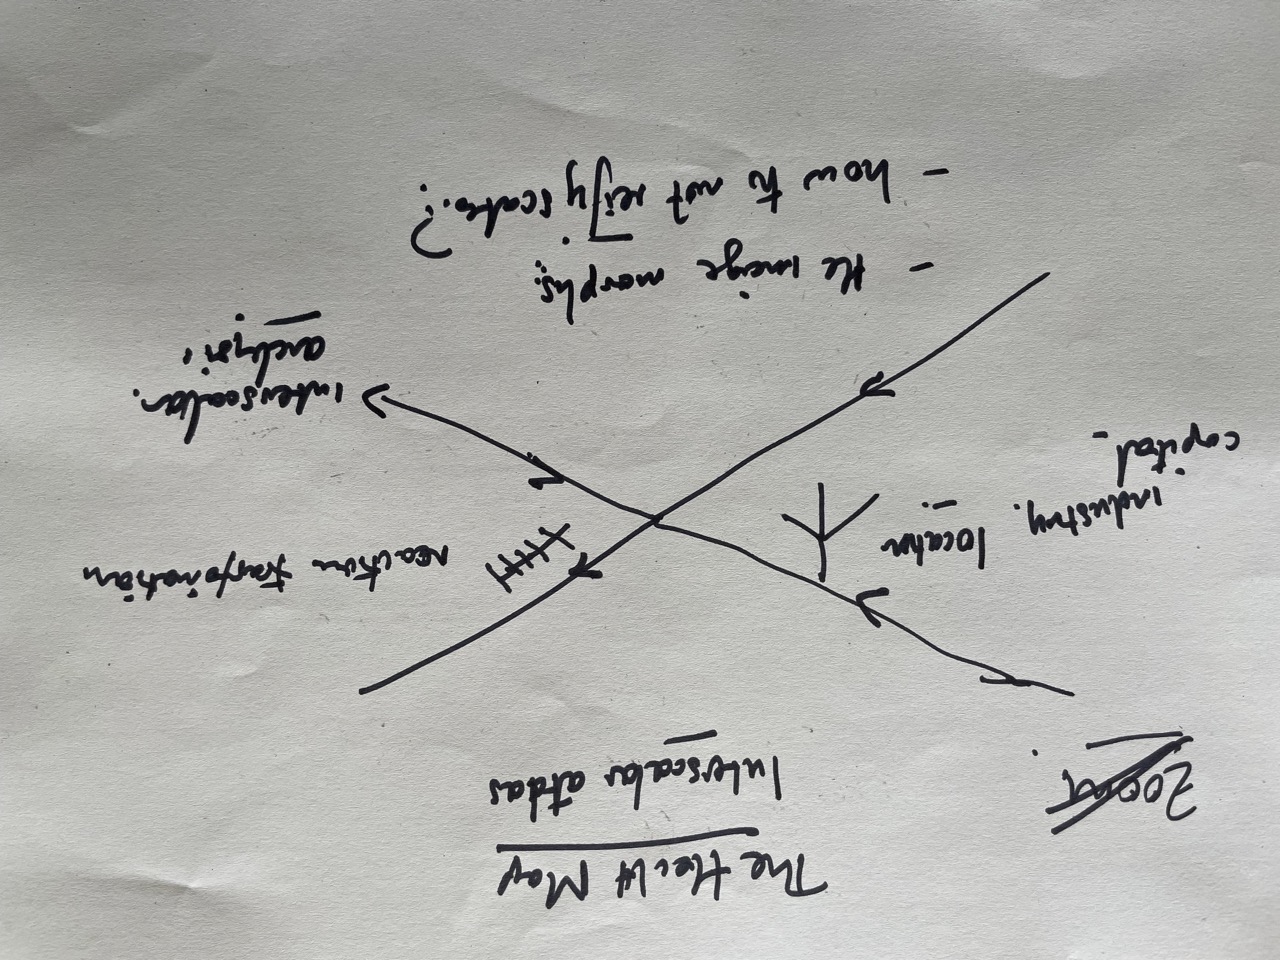 The Hecht Map
Zoom.
Interscalar atlas
location
industry.
capital
reaction transformation
interscalar.
analysis.
- the image morphs.
- how to not reify scales.?